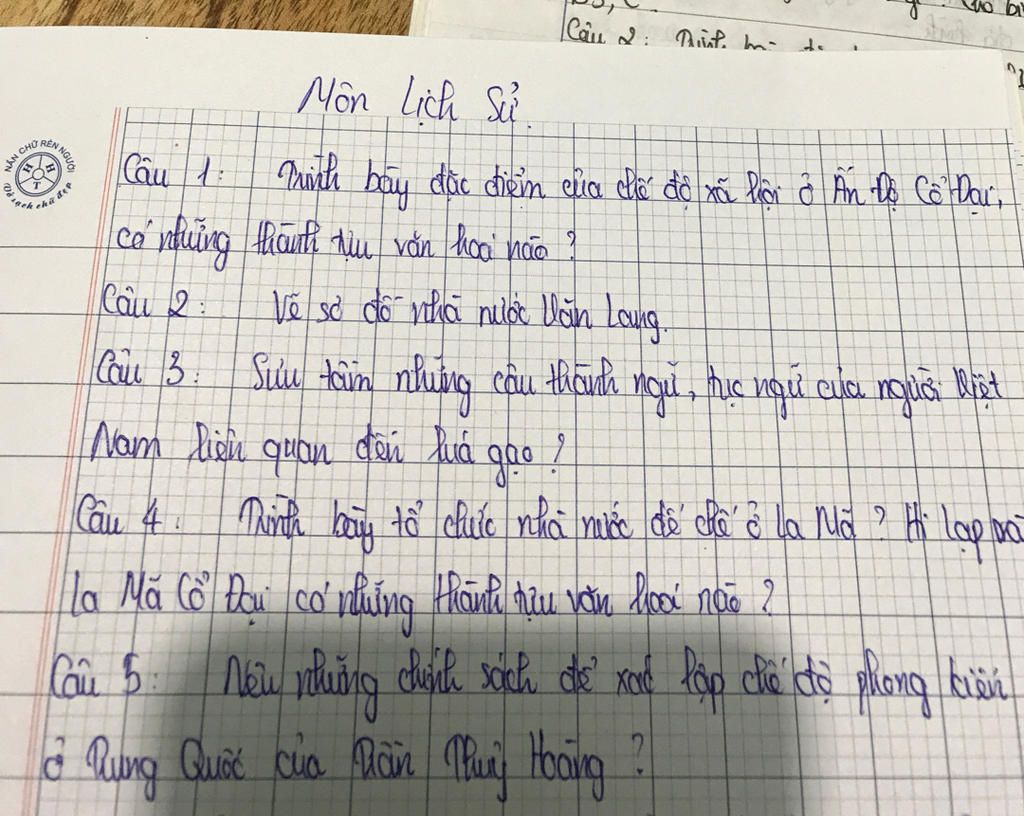 Câu 2: Trình
Môn Lịch Sử.
NẮN CHỮ RÈN NGƯỜI
HHT
Câu 1: Trình bày đặc điểm của chế độ xã hội ở Ấn Độ Cổ Đại,
có những thành tựu văn hoá nào?
Câu 2: Vẽ sơ đồ nhà nước Văn Lang.
Câu 3: Sưu tầm những câu thành ngữ, tục ngữ của người Việt
Nam liên quan đến lúa gạo?
Câu 4: Trình bày tổ chức nhà nước đế chế ở La Mã? Hi Lạp và
La Mã Cổ Đại có những thành tựu văn hoá nào?
Câu 5: Nêu những chính sách để xác lập chế độ phong kiến
ở Trung Quốc của Tần Thuỷ Hoàng?